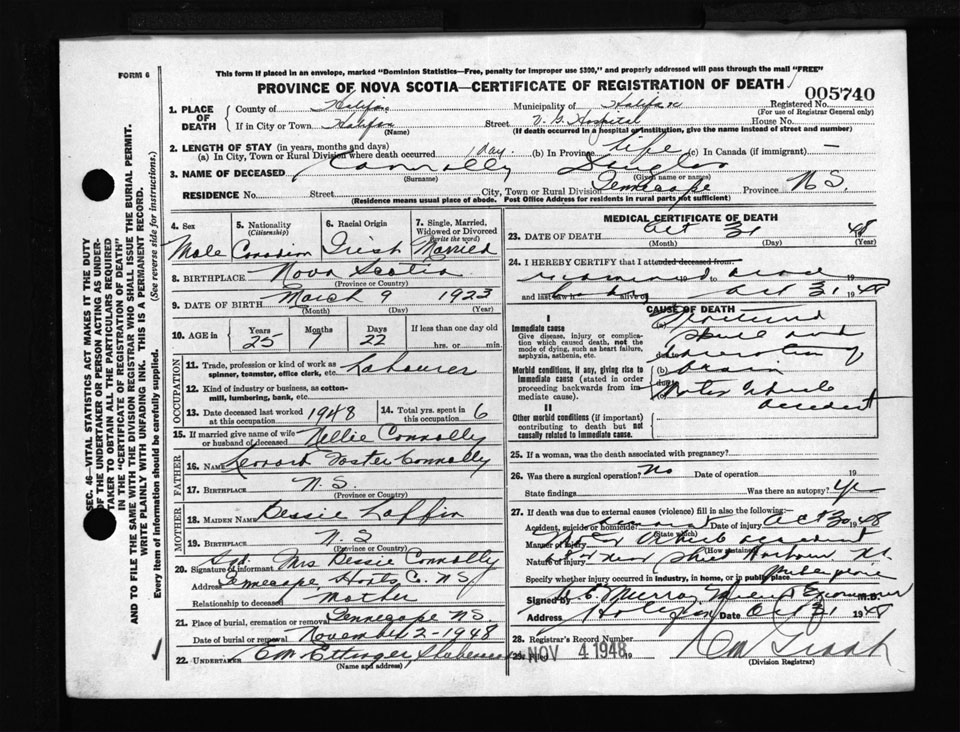 FORM 6
This form if placed in an envelope, marked "Dominion Statistics—Free, penalty for improper use $300," and properly addressed will pass through the mail "FREE"
PROVINCE OF NOVA SCOTIA—CERTIFICATE OF REGISTRATION OF DEATH
005740
1. PLACE OF DEATH County of Halifax Municipality of Halifax Registered No.
(For use of Registrar General only)
If in City or Town Halifax Street V. G. Hospital House No.
(Name) (If death occurred in a hospital or institution, give the name instead of street and number)
2. LENGTH OF STAY (in years, months and days)
(a) In City, Town or Rural Division where death occurred 1 day. (b) In Province Life (c) In Canada (if immigrant) —
3. NAME OF DECEASED Connolly Douglas
(Surname) (Given name or names)
RESIDENCE No. Street City, Town or Rural Division Tennecape Province N.S.
(Residence means usual place of abode. Post Office Address for residents in rural parts not sufficient)
4. Sex 5. Nationality (Citizenship) 6. Racial Origin 7. Single, Married, Widowed or Divorced (write the word)
Male Canadian Irish Married
8. BIRTHPLACE Nova Scotia
(Province or Country)
9. DATE OF BIRTH March 9 1923
(Month) (Day) (Year)
10. AGE in Years Months Days If less than one day old
25 7 22 hrs. or min.
OCCUPATION
11. Trade, profession or kind of work as spinner, teamster, office clerk, etc. Labourer
12. Kind of industry or business, as cotton-mill, lumbering, bank, etc.
13. Date deceased last worked at this occupation 1948 14. Total yrs. spent in this occupation 6
15. If married give name of wife or husband of deceased Nellie Connolly
FATHER
16. NAME Leonard Foster Connolly
17. BIRTHPLACE N.S.
(Province or Country)
MOTHER
18. MAIDEN NAME Bessie Laffin
19. BIRTHPLACE N.S
(Province or Country)
20. Signature of informant Sgd. Mrs Bessie Connolly
Address Tennecape Hants Co. N.S
Relationship to deceased Mother
21. Place of burial, cremation or removal Tennecape N.S.
Date of burial or removal November 2-1948
22. UNDERTAKER E M Ettinger,
(Name and address)
MEDICAL CERTIFICATE OF DEATH
23. DATE OF DEATH Oct 31 48
(Month) (Day) (Year)
24. I HEREBY CERTIFY that I attended deceased from:
19
and last saw h alive on Oct 31 1948
CAUSE OF DEATH
I
Immediate cause
Give disease, injury or complication which caused death, not the mode of dying, such as heart failure, asphyxia, asthenia, etc.
(a) Fractured
skull and
due to laceration of
Morbid conditions, if any, giving rise to immediate cause (stated in order proceeding backwards from immediate cause)
(b) brain
due to
(c) Motor Vehicle
accident
II
Other morbid conditions (if important) contributing to death but not causally related to immediate cause.
25. If a woman, was the death associated with pregnancy?
26. Was there a surgical operation? No Date of operation 19
State findings Was there an autopsy? Yes
27. If death was due to external causes (violence) fill in also the following:
Accident, suicide or homicide? (State which) Date of injury Oct 30 1948
Manner of injury Motor Vehicle accident
(How sustained)
Nature of injury near Sheet Harbour N.S.
Specify whether injury occurred in industry, in home, or in public place Public place
Signed by Murray Medical Examiner M.D.
Address Date Oct 31 1948
28. Registrar's Record Number
29. NOV 4 1948 19
(Division Registrar)
SEC. 46—VITAL STATISTICS ACT MAKES IT THE DUTY
OF THE UNDERTAKER OR PERSON ACTING AS UNDER-
TAKER TO OBTAIN ALL THE PARTICULARS REQUIRED
IN THE "CERTIFICATE OF REGISTRATION OF DEATH"
AND TO FILE THE SAME WITH THE DIVISION REGISTRAR WHO SHALL ISSUE THE BURIAL PERMIT.
WRITE PLAINLY WITH UNFADING INK. THIS IS A PERMANENT RECORD.
Every item of information should be carefully supplied. (See reverse side for instructions.)